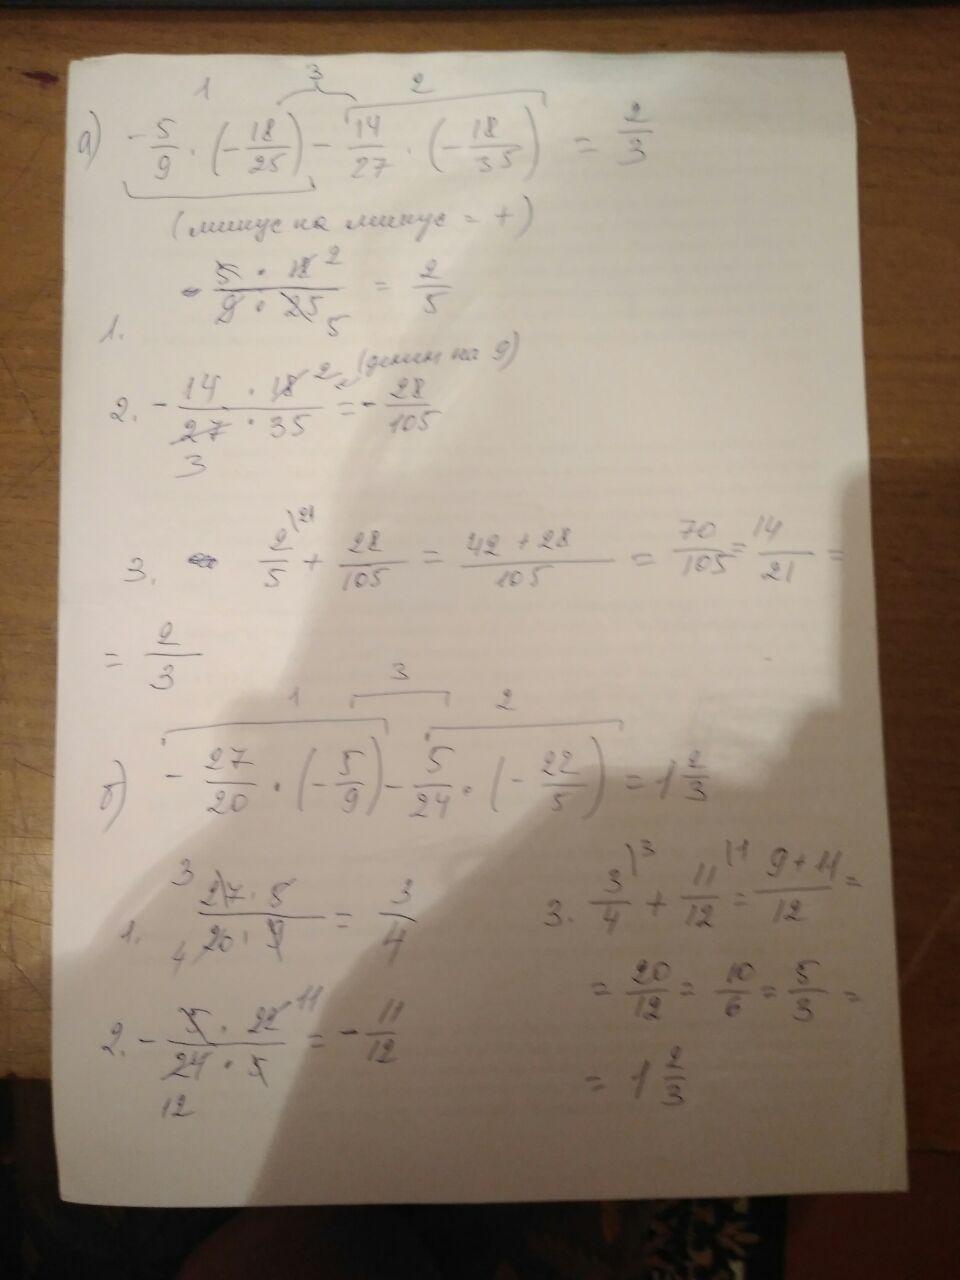 1 3 2
а) -5/9 · (-18/25) - 14/27 · (-18/35) = 2/3
(минус на минус = +)
1. 5 · 18 2 / 9 · 25 5 = 2/5
2. - 14 · 18 2 / 27 3 · 35 = - 28/105 (делим на 9)
3. 2/5 \21 + 28/105 = 42 + 28/105 = 70/105 = 14/21 =
= 2/3
1 3 2
б) - 27/20 · (-5/9) - 5/24 · (-22/5) = 1 2/3
1. 3 27 · 5 / 4 20 · 9 = 3/4
2. - 5 · 22 11 / 24 12 · 5 = - 11/12
3. 3/4 \3 + 11/12 \1 = 9 + 11/12 =
= 20/12 = 10/6 = 5/3 =
= 1 2/3